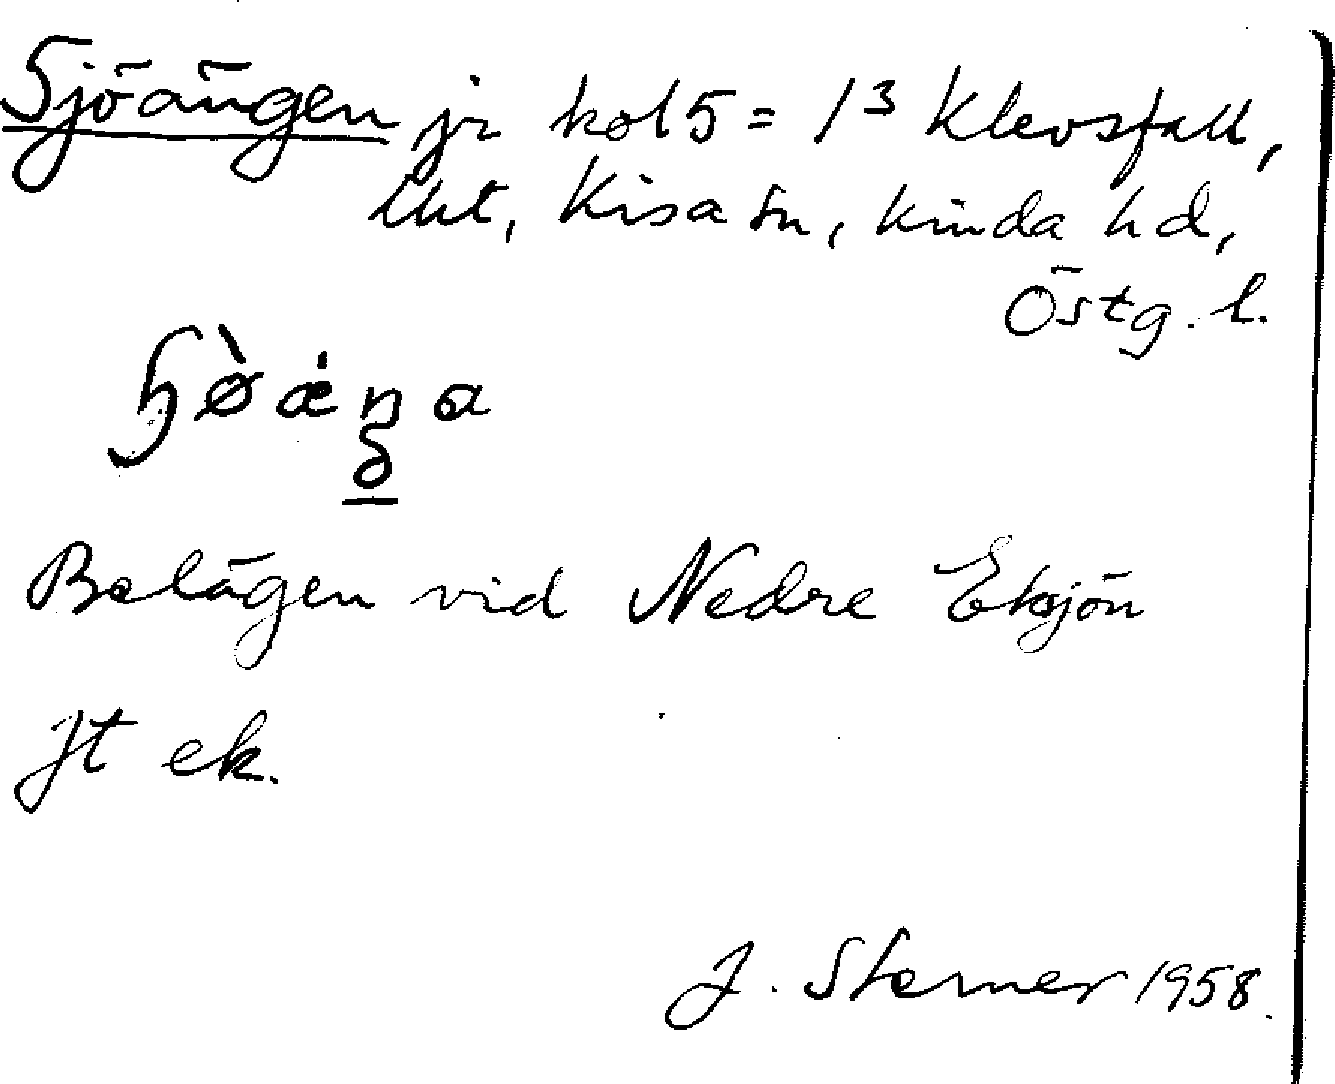 Sjöängen jr kol 5 = 1³ Klevsfall,
Kisa sn, Kinda hd,
Östg. l.
Belägen vid Nedre Eksjön
Jt ek.
J. Sterner 1958.